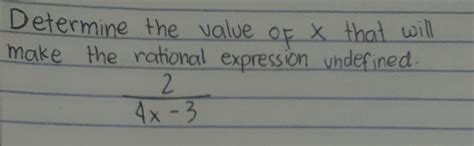 Determine the value of x that will
make the rational expression undefined.
2
4x - 3